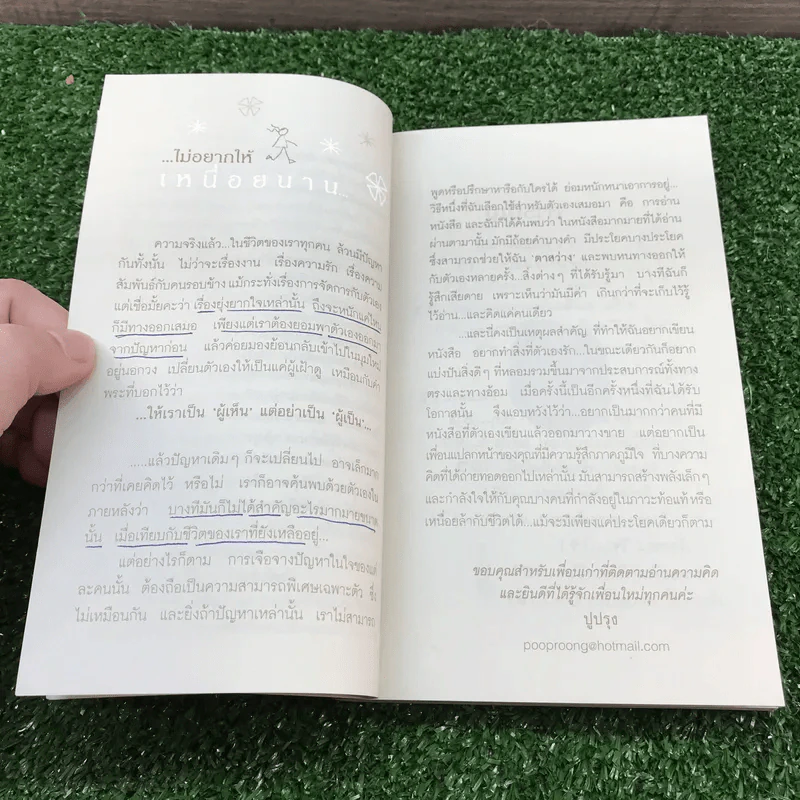 ...ไม่อยากให้
เหนื่อยนาน...
ความจริงแล้ว...ในชีวิตของเราทุกคน ล้วนมีปัญหา
กันทั้งนั้น ไม่ว่าจะเรื่องงาน เรื่องความรัก เรื่องความ
สัมพันธ์กับคนรอบข้าง แม้กระทั่งเรื่องการจัดการกับตัวเอง
แต่เชื่อมั้ยคะว่า เรื่องยุ่งยากใจเหล่านั้น ถึงจะหนักแค่ไหน
ก็มีทางออกเสมอ เพียงแต่เราต้องยอมพาตัวเองออกมา
จากปัญหาก่อน แล้วค่อยมองย้อนกลับเข้าไปในมุมใหม่
อยู่นอกวง เปลี่ยนตัวเองให้เป็นแค่ผู้เฝ้าดู เหมือนกับคำ
พระที่บอกไว้ว่า
...ให้เราเป็น 'ผู้เห็น' แต่อย่าเป็น 'ผู้เป็น'...
.....แล้วปัญหาเดิมๆ ก็จะเปลี่ยนไป อาจเล็กมาก
กว่าที่เคยคิดไว้ หรือไม่ เราก็อาจค้นพบด้วยตัวเองใน
ภายหลังว่า บางทีมันก็ไม่ได้สำคัญอะไรมากมายขนาด
นั้น เมื่อเทียบกับชีวิตของเราที่ยังเหลืออยู่...
แต่อย่างไรก็ตาม การเจือจางปัญหาในใจของแต่
ละคนนั้น ต้องถือเป็นความสามารถพิเศษเฉพาะตัว ซึ่ง
ไม่เหมือนกัน และยิ่งถ้าปัญหาเหล่านั้น เราไม่สามารถ
พูดหรือปรึกษาหารือกับใครได้ ย่อมหนักหนาเอาการอยู่...
วิธีหนึ่งที่ฉันเลือกใช้สำหรับตัวเองเสมอมา คือ การอ่าน
หนังสือ และฉันก็ได้ค้นพบว่า ในหนังสือมากมายที่ได้อ่าน
ผ่านตามานั้น มักมีถ้อยคำบางคำ มีประโยคบางประโยค
ซึ่งสามารถช่วยให้ฉัน 'ตาสว่าง' และพบหนทางออกให้
กับตัวเองหลายครั้ง...สิ่งต่างๆ ที่ได้รับรู้มา บางทีฉันก็
รู้สึกเสียดาย เพราะเห็นว่ามันมีค่า เกินกว่าที่จะเก็บไว้รู้
ไว้อ่าน...และคิดแค่คนเดียว
...และนี่คงเป็นเหตุผลสำคัญ ที่ทำให้ฉันอยากเขียน
หนังสือ อยากทำสิ่งที่ตัวเองรัก...ในขณะเดียวกันก็อยาก
แบ่งปันสิ่งดีๆ ที่หลอมรวมขึ้นมาจากประสบการณ์ทั้งทาง
ตรงและทางอ้อม เมื่อครั้งนี้เป็นอีกครั้งหนึ่งที่ฉันได้รับ
โอกาสนั้น จึงแอบหวังไว้ว่า...อยากเป็นมากกว่าคนที่มี
หนังสือที่ตัวเองเขียนแล้วออกมาวางขาย แต่อยากเป็น
เพื่อนแปลกหน้าของคุณที่มีความรู้สึกภาคภูมิใจ ที่บางความ
คิดที่ได้ถ่ายทอดออกไปเหล่านั้น มันสามารถสร้างพลังเล็กๆ
และกำลังใจให้กับคุณบางคนที่กำลังอยู่ในภาวะท้อแท้หรือ
เหนื่อยล้ากับชีวิตได้...แม้จะมีเพียงแค่ประโยคเดียวก็ตาม
ขอบคุณสำหรับเพื่อนเก่าที่ติดตามอ่านความคิด
และยินดีที่ได้รู้จักเพื่อนใหม่ทุกคนค่ะ
ปูปรุง
pooproong@hotmail.com